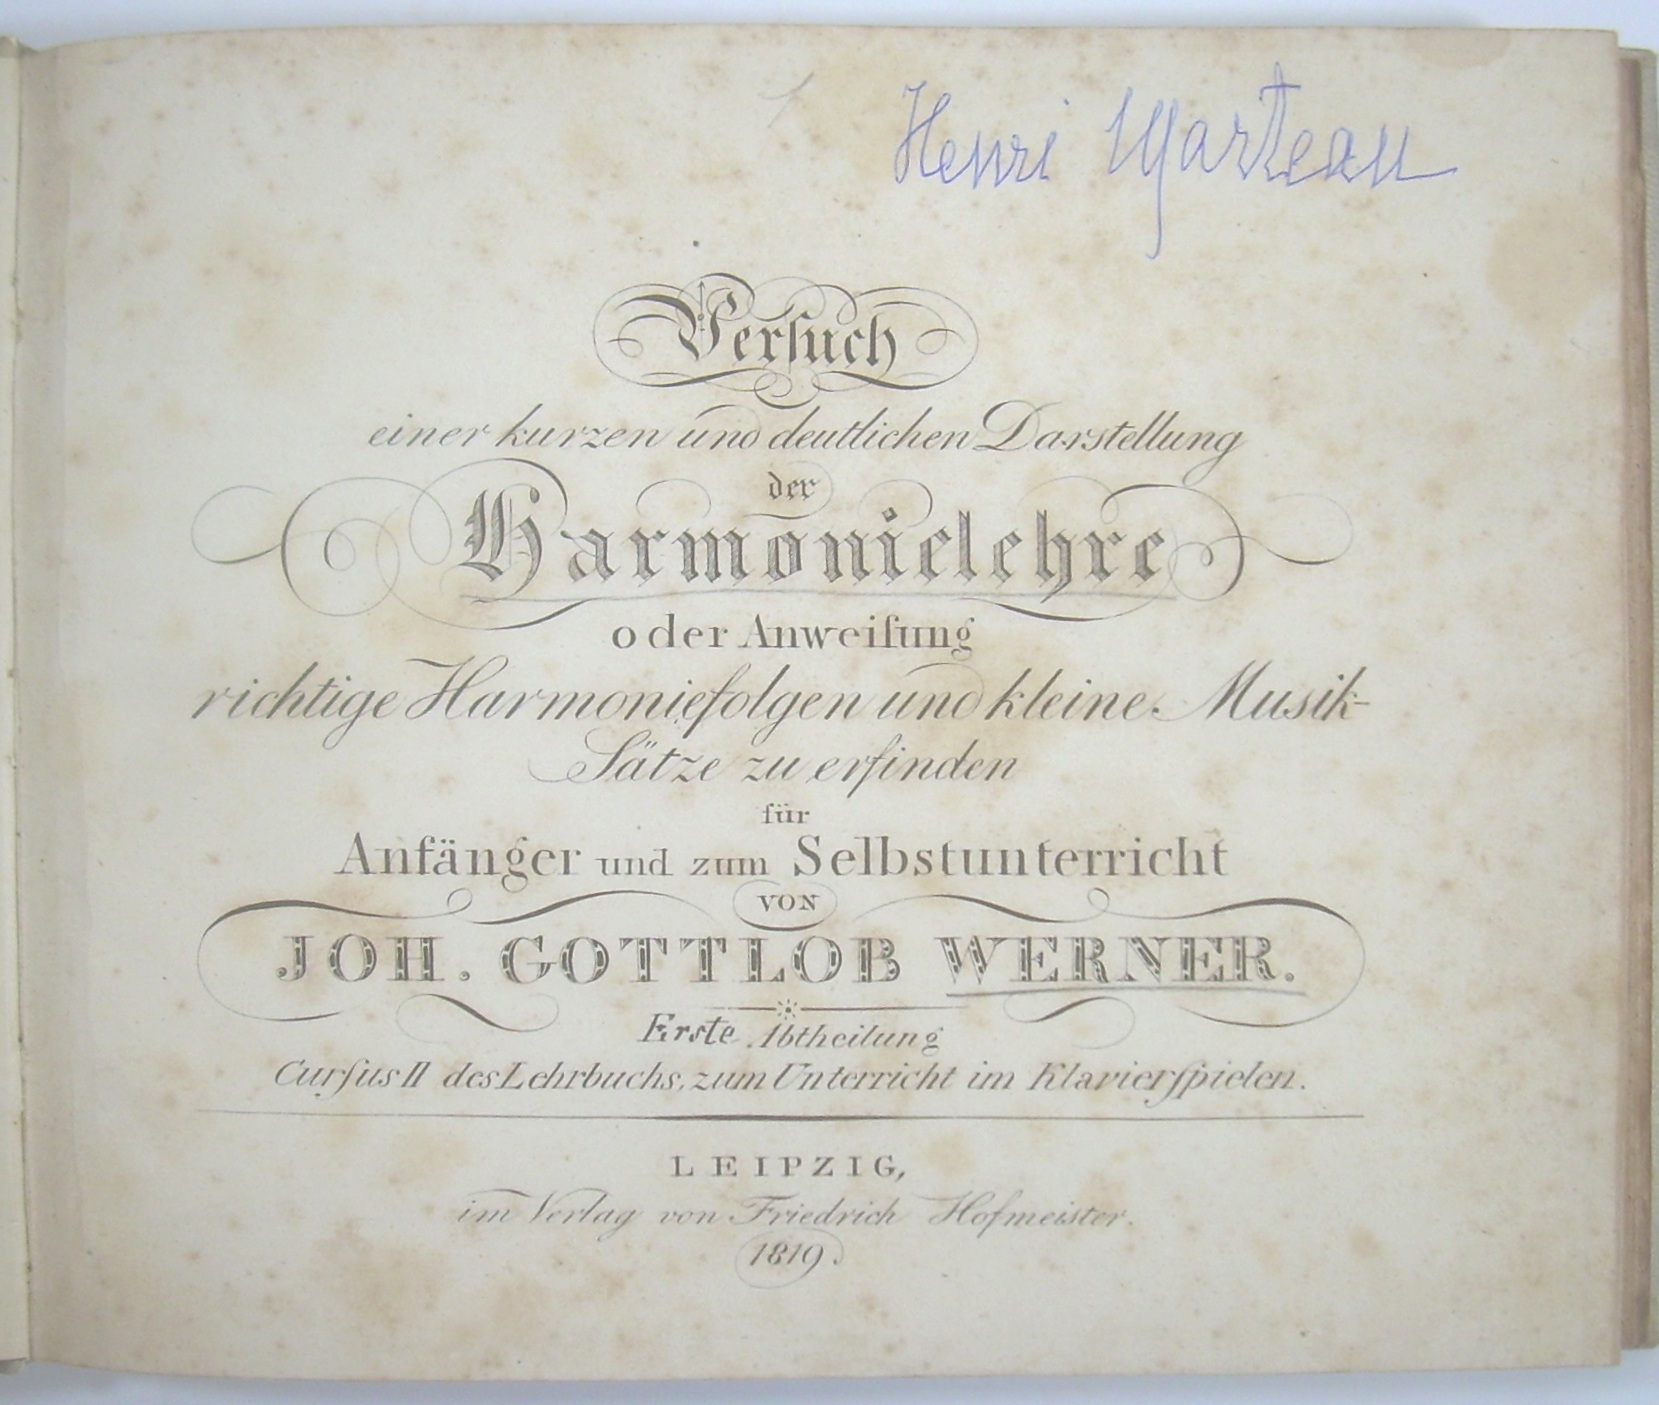 Henri Marteau
Verſuch
einer kurzen und deutlichen Darstellung
der
Harmonielehre
oder Anweiſung
richtige Harmoniefolgen und kleine Musik-
Sätze zu erfinden
für
Anfänger und zum Selbstunterricht
VON
JOH. GOTTLOB WERNER.
Erste Abtheilung
Curſus II des Lehrbuchs, zum Unterricht im Klavierſpielen.
LEIPZIG,
im Verlag von Friedrich Hofmeister.
1819.